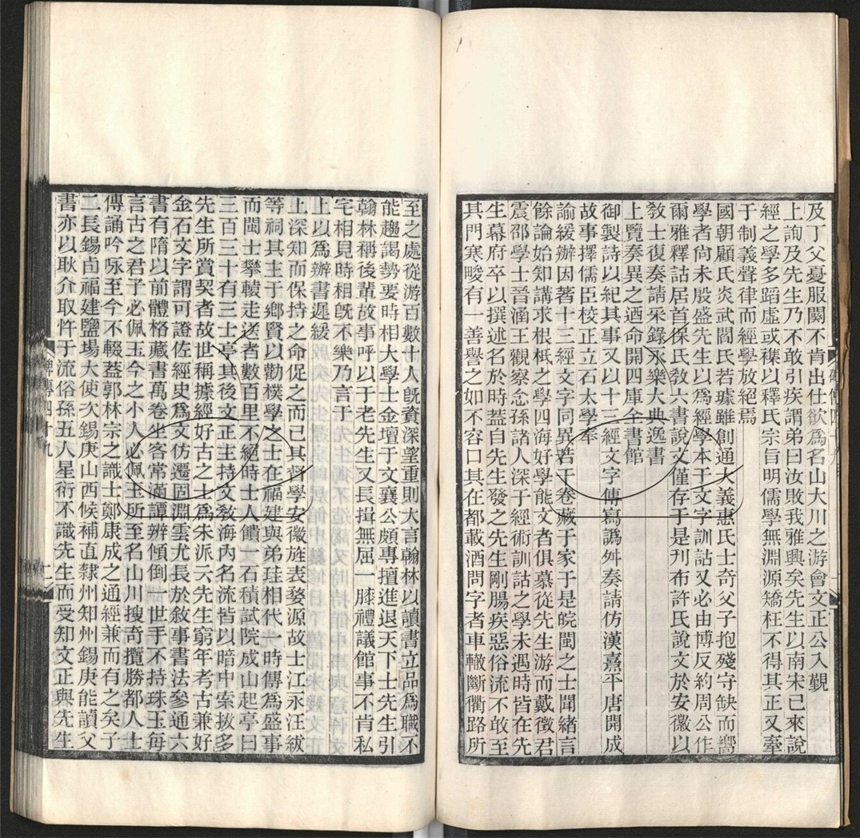 及丁父憂服闋不肯出仕欲爲名山大川之游會文正公入覲
上詢及先生乃不敢引疾謂弟曰汝敗我雅興矣先生以南宋已來說
經之學多蹈虛或襍以釋氏宗旨明儒學無淵源矯枉不得其正又牽
于制義聲律而經學放絕焉
國朝顧氏炎武閻氏若璩雖創通大義惠氏士奇父子抱殘守缺而嚮
學者尙未殷盛先生以爲經學本于文字訓詁又必由博反約周公作
爾雅釋詁居首保氏敎六書說文僅存于是刊布許氏說文於安徽以
敎士復奏請采錄永樂大典逸書
上覽奏異之迺命開四庫全書館
御製詩以紀其事又以十三經文字傳寫譌舛奏請仿漢熹平唐開成
故事擇儒臣校正立石太學奉
諭緩辦因著十三經文字同異若干卷藏于家于是皖閩之士聞緒言
餘論始知講求根柢之學四海好學能文者俱慕從先生游而戴徵君
震邵學士晉涵王觀察念孫諸人深于經術訓詁之學未遇時皆在先
生幕府卒以撰述名於時蓋自先生發之先生剛腸疾惡俗流不敢至
其門寒畯有一善譽之如不容口其在都載酒問字者車轍斷衢路所
至之處從游百數十人旣資深望重則大言翰林以讀書立品爲職不
能趨謁勢要時相大學士金壇于文襄公頗專擅進退天下士先生引
翰林稱後輩故事呼以于老先生又長揖無屈一膝禮議館事不肯私
宅相見時相旣不樂乃言于
上以爲辦書遲緩
上深知而保持之命促之而已其督學安徽旌表婺源故士江永汪紱
等祠其主于鄉賢以勸樸學之士在福建與弟珪相代一時傳爲盛事
而閩士攀轅走送者數百里不絕時士人饋一石積試院成山起亭曰
三百三十有三士亭其後文正主持文敎海內名流皆以暗中索拔多
先生所賞契者故世稱據經好古之士爲朱派云先生窮年考古兼好
金石文字謂可證佐經史爲文仿遷固淵雲尤長於敘事書法參通六
書有隋以前體格藏書萬卷坐客常滿譚辨傾倒一世手不持珠玉每
言古之君子必佩玉今之小人必佩玉所至名山川搜奇攬勝都人士
傳誦吟咏至今不輟蓋郭林宗之識士鄭康成之通經兼而有之矣子
二長錫卣福建鹽場大使次錫庚山西候補直隸州知州錫庚能讀父
書亦以耿介取忤于流俗孫五人星衍不識先生而受知文正與先生
碑傳四十九